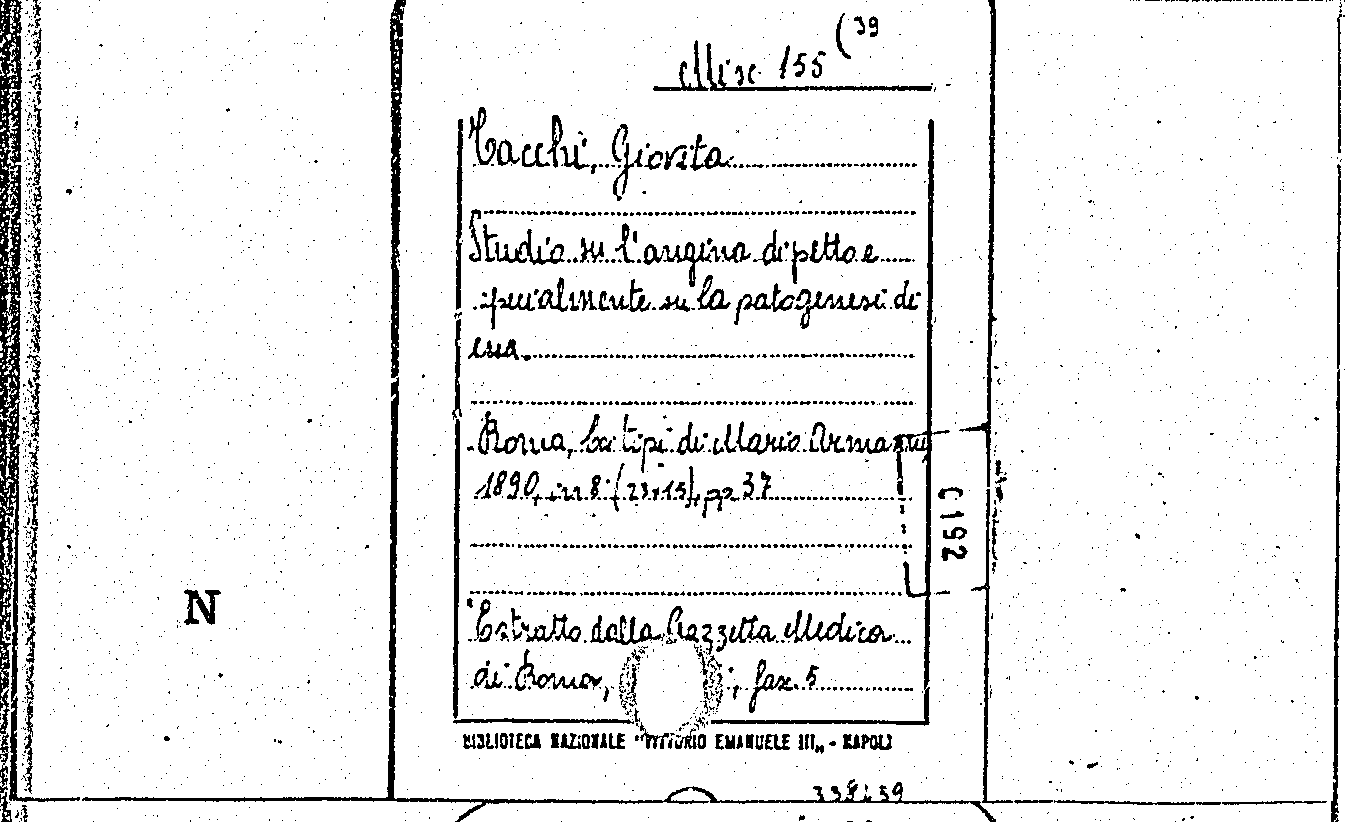 Misc 155 (39
Tacchi, Giovita
Studio su l'angina di petto e
specialmente su la patogenesi di
essa.
Roma, tipi di Mario Armanni,
1890, in 8° (23x15), pp 37
Estratto dalla Gazzetta Medica
di Roma, fasc. 5
C192
N
BIBLIOTECA NAZIONALE "VITTORIO EMANUELE III„ - NAPOLI